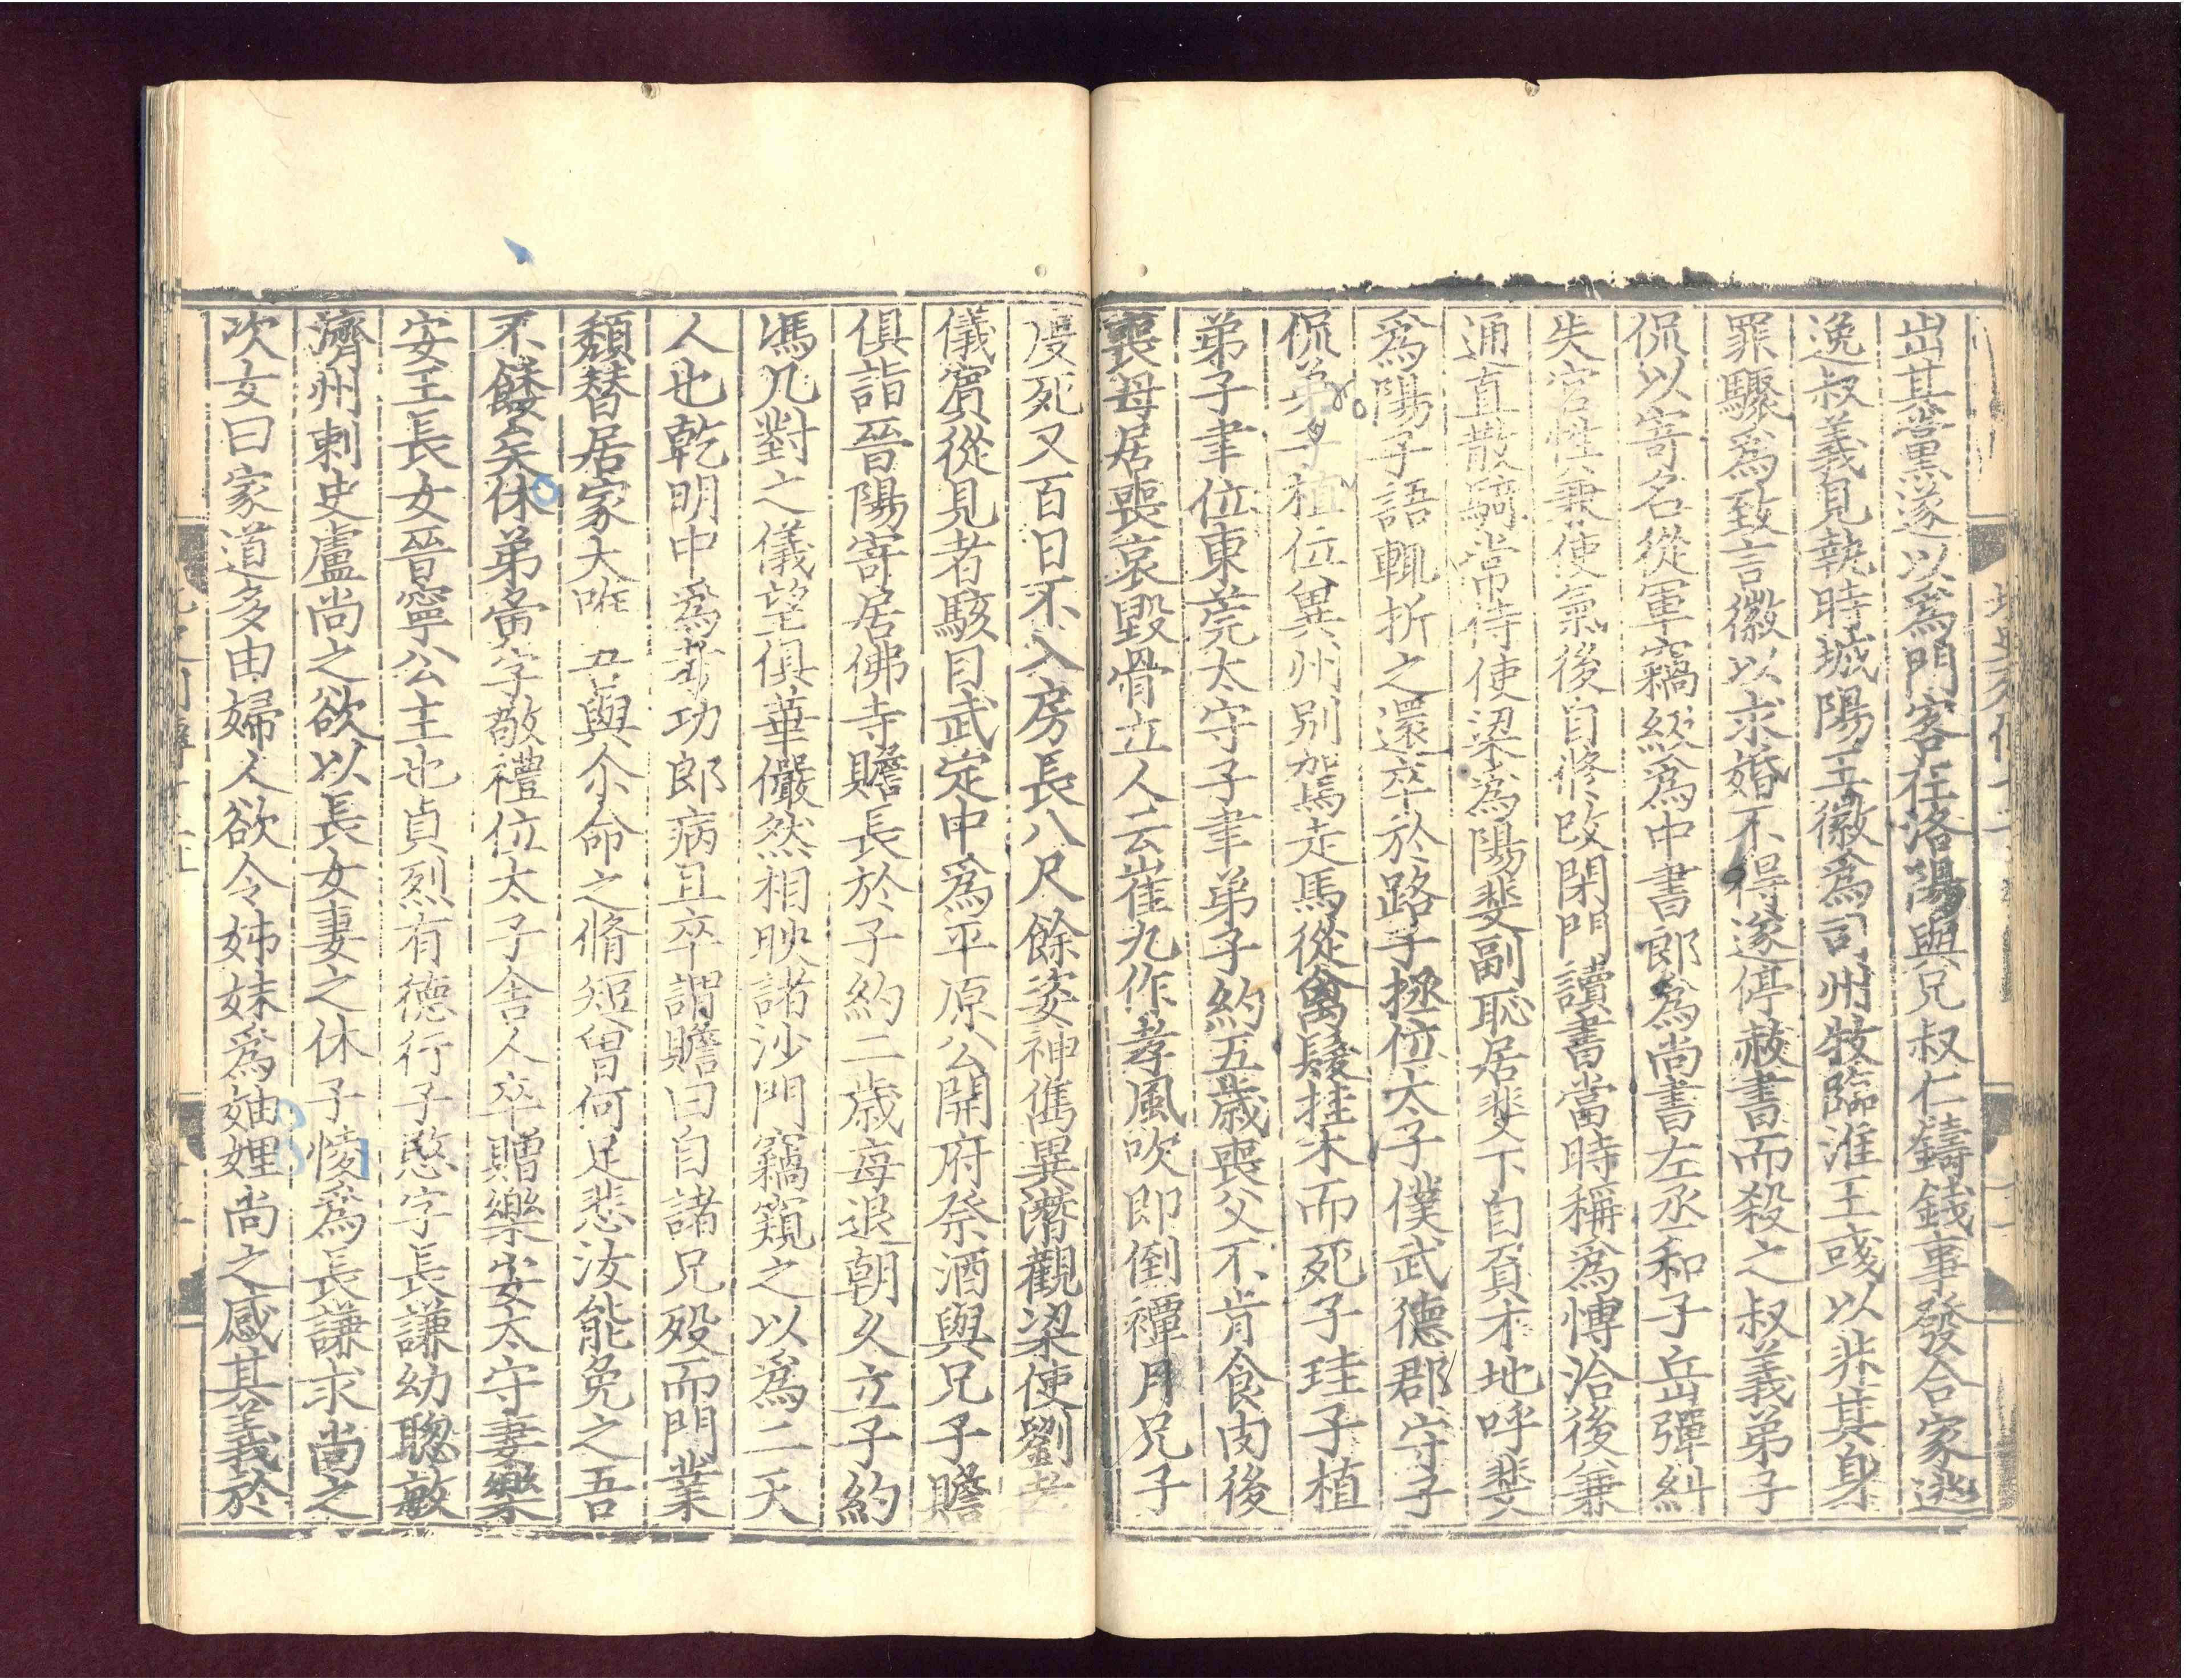 出其黨遂以爲門客在洛陽與兄叔仁鑄錢事發合家逃
逸叔義見執時城陽王徽爲司州牧臨淮王彧以非其身
罪驟爲致言徽以求婚不得遂停赦書而殺之叔義弟子
侃以寄名從軍竊級爲中書郎爲尚書左丞和子岳彈糾
失官性兼使氣後自修改閉門讀書當時稱爲博洽後兼
通直散騎常侍使梁爲陽斐副恥居斐下自負才地呼斐
爲陽子語輒折之還卒於路子拯位太子僕武德郡守子
侃弟子植位冀州別駕走馬從禽髮挂木而死子珪子植
弟子聿位東莞太守子聿弟子約五歲喪父不肯食肉後
喪母居喪哀毀骨立人云崔九作孝風吹即倒禫月兄子
度死又百日不入房長八尺餘姿神儁異潛觀梁使劉孝
儀賓從見者駭目武定中爲平原公開府祭酒與兄子贍
俱詣晉陽寄居佛寺贍長於子約二歲每退朝久立子約
馮几對之儀望俱華儼然相映諸沙門竊窺之以爲二天
人也乾明中爲考功郎病且卒謂贍曰自諸兄歿而門業
頹替居家大唯吾與介命之脩短曾何足悲汝能免之吾
不餒矣休弟夤字敬禮位太子舍人卒贈樂安太守妻樂
安王長女晉寧公主也貞烈有德行子愍字長謙幼聰敏
濟州刺史盧尚之欲以長女妻之休子㥄爲長謙求尚之
次女曰家道多由婦人欲令姊妹爲妯娌尚之感其義於